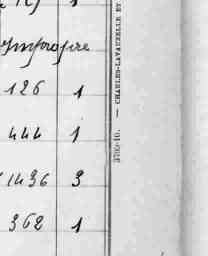 1
impropre
126 1
444 1
1436 3
362 1
3702-10. — CHARLES-LAVAUZELLE ET